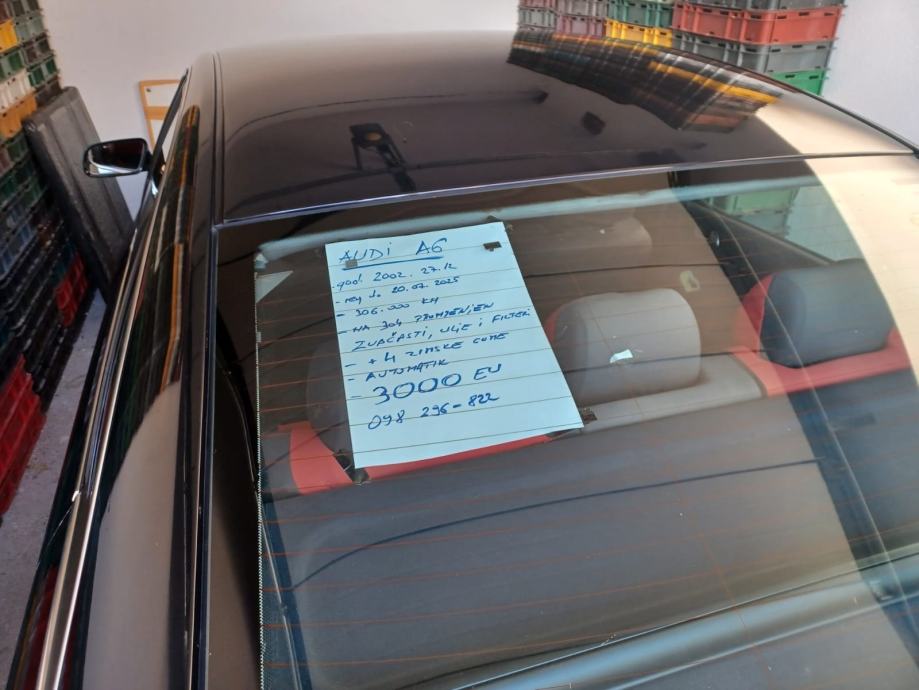 AUDI A6
- god. 2002. 27.12
- reg do 20.07.2025
- 306.000 KM
- NA 304 PROMJENJEN
ZUPČASTI, ULJE I FILTERI
- + 4 ZIMSKE GUME
- AUTOMATIK
- 3000 EU
098 296-822